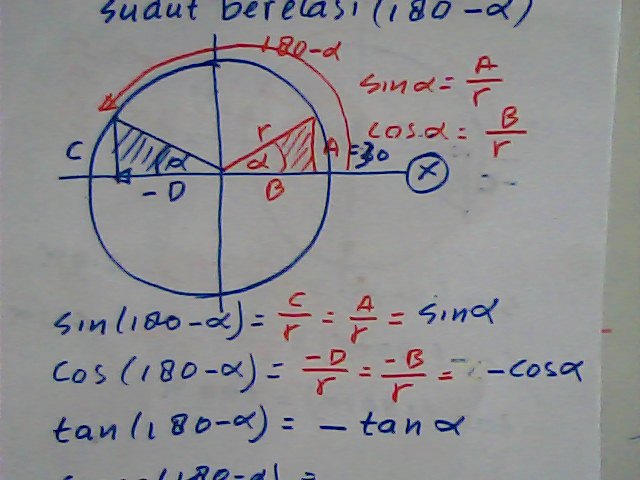 sudut berelasi (180-α)
180-α
sin α = A/r
cos α = B/r
C
r
A
=30
α
α
X
-D
B
sin(180-α) = C/r = A/r = sin α
cos (180-α) = -D/r = -B/r = -cos α
tan (180-α) = - tan α
(180-α) =